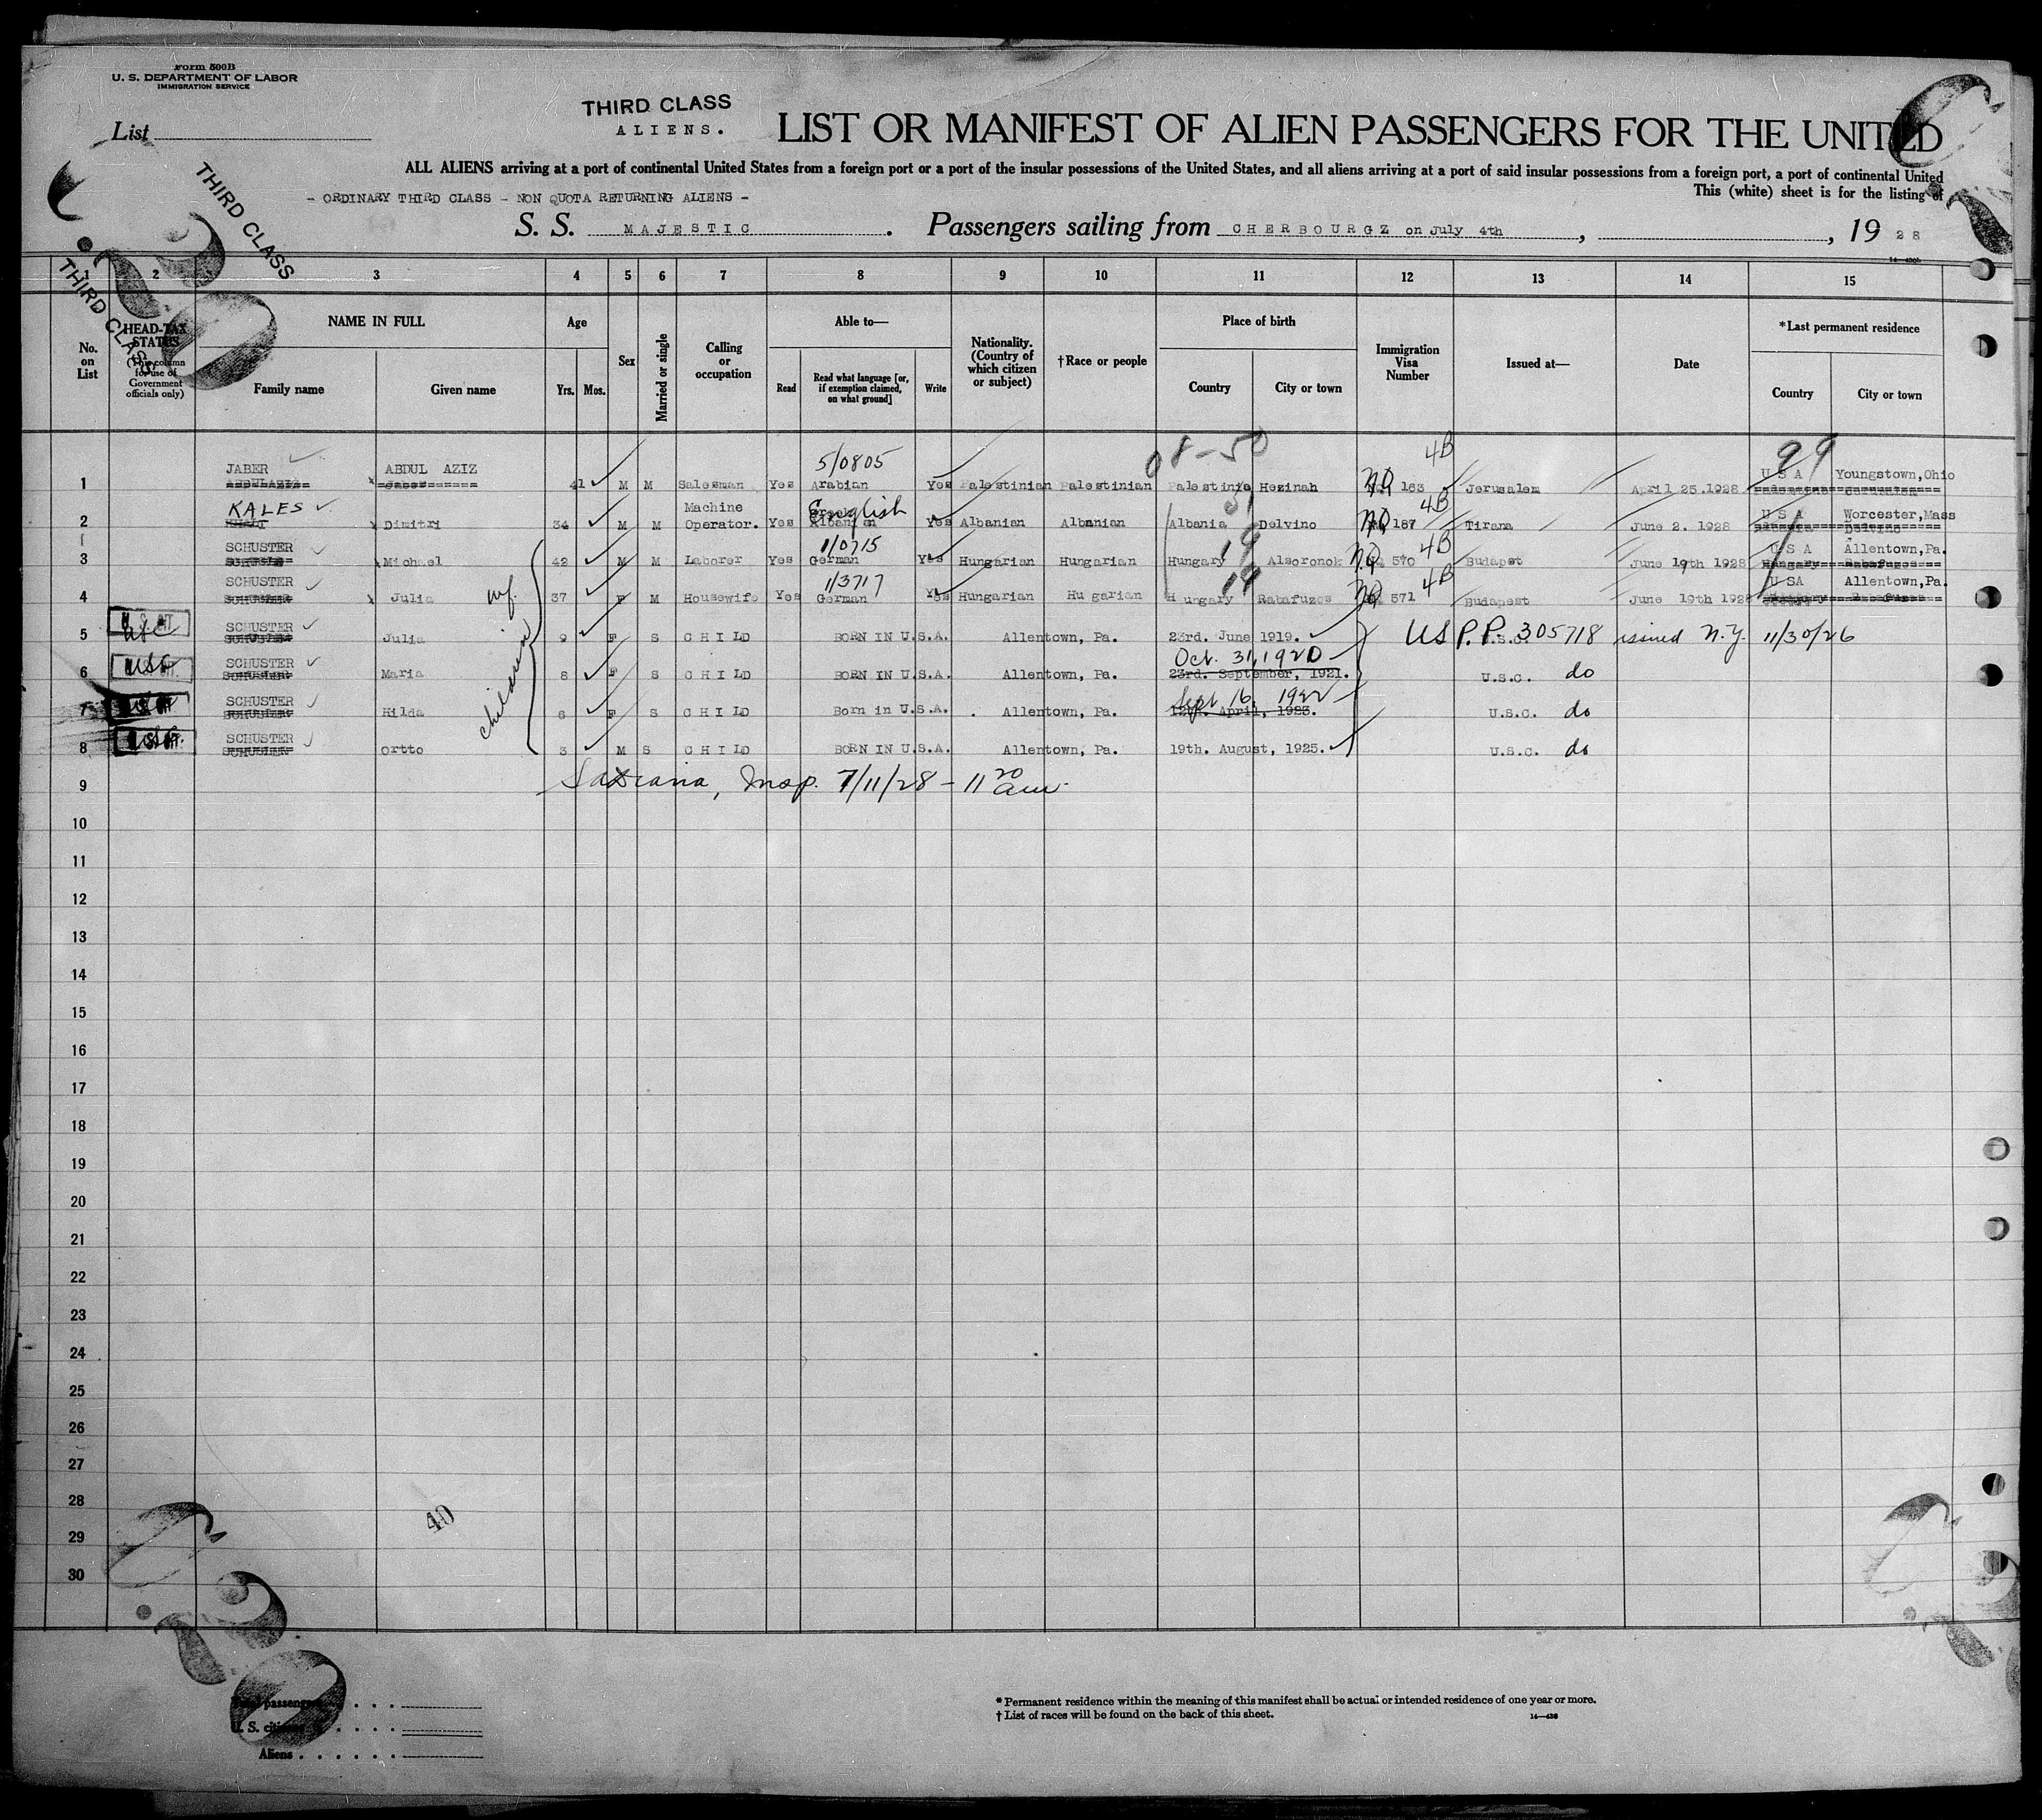 Form 500B
U. S. DEPARTMENT OF LABOR
IMMIGRATION SERVICE
List
THIRD CLASS
ALIENS.
LIST OR MANIFEST OF ALIEN PASSENGERS FOR THE UNITED
THIRD CLASS
THIRD CLASS
ALL ALIENS arriving at a port of continental United States from a foreign port or a port of the insular possessions of the United States, and all aliens arriving at a port of said insular possessions from a foreign port, a port of continental United
This (white) sheet is for the listing of
- ORDINARY THIRD CLASS - NON QUOTA RETURNING ALIENS -
S. S. MAJESTIC. Passengers sailing from CHERBOURGZ on July 4th, , 19 28
1 2 3 4 5 6 7 8 9 10 11 12 13 14 15
No. on List
HEAD-TAX STATUS (This column for use of Government officials only)
NAME IN FULL
Family name Given name
Age
Yrs. Mos.
Sex
Married or single
Calling or occupation
Able to—
Read Read what language [or, if exemption claimed, on what ground] Write
Nationality. (Country of which citizen or subject)
†Race or people
Place of birth
Country City or town
Immigration Visa Number
Issued at—
Date
*Last permanent residence
Country City or town
5/0805 08-50 4B 99
1 JABER ABDUL AZIZ 41 M M Salesman Yes Arabian Yes Palestinian Palestinian Palestinia Hezinah NQ 163 Jerusalem April 25.1928 U S A Youngstown, Ohio
2 KALES Dimitri 34 M M Machine Operator. Yes English Albanian Yes Albanian Albanian Albania Delvino NQ 187 4B Tirana June 2. 1928 U S A Worcester, Mass
1/0715 19 4B
3 SCHUSTER Michael 42 M M Laborer Yes German Yes Hungarian Hungarian Hungary Alsoronok NQ 570 Budapest June 19th 1928 U S A Allentown, Pa.
1/3717 19 4B
4 SCHUSTER Julia wf. 37 F M Housewife Yes German Yes Hungarian Hu garian H ungary Rabafuzes NQ 571 Budapest June 19th 1928 U SA Allentown, Pa.
children
5 USC SCHUSTER Julia 9 F S CHILD BORN IN U.S.A. Allentown, Pa. 23rd. June 1919. US P.P. 305718 issued N.Y. 11/30/26
Oct. 31, 1920
6 USC SCHUSTER Maria 8 F S CHILD BORN IN U.S.A. Allentown, Pa. 23rd. September, 1921. U.S.C. do
Sept 16, 1922
7 SCHUSTER Hilda 6 F S CHILD Born in U.S.A. Allentown, Pa. 12th. April, 1923. U.S.C. do
8 SCHUSTER Ortto 3 M S CHILD BORN IN U.S.A. Allentown, Pa. 19th. August, 1925. U.S.C. do
9 Insp. 7/11/28 - 11 20 am
10
11
12
13
14
15
16
17
18
19
20
21
22
23
24
25
26
27
28
29
30
40
Total passengers
U. S. citizens
Aliens
* Permanent residence within the meaning of this manifest shall be actual or intended residence of one year or more.
† List of races will be found on the back of this sheet.